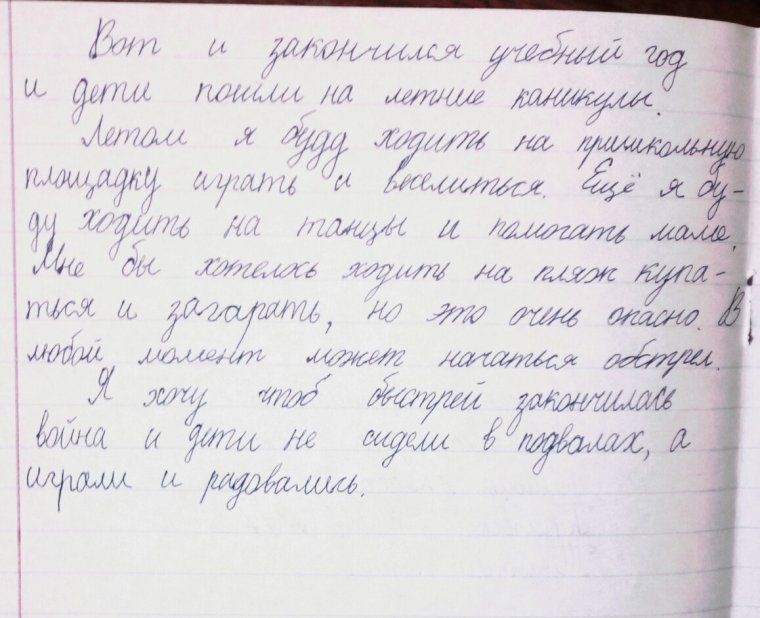 Вот и закончился учебный год
и дети пошли на летние каникулы.
Летом я буду ходить на пришкольную
площадку играть и веселиться. Ещё я бу-
ду ходить на танцы и помогать маме.
Мне бы хотелось ходить на пляж купа-
ться и загарать, но это очень опасно. В
любой момент может начаться обстрел.
Я хочу чтоб быстрей закончилась
война и дети не сидели в подвалах, а
играли и радовались.